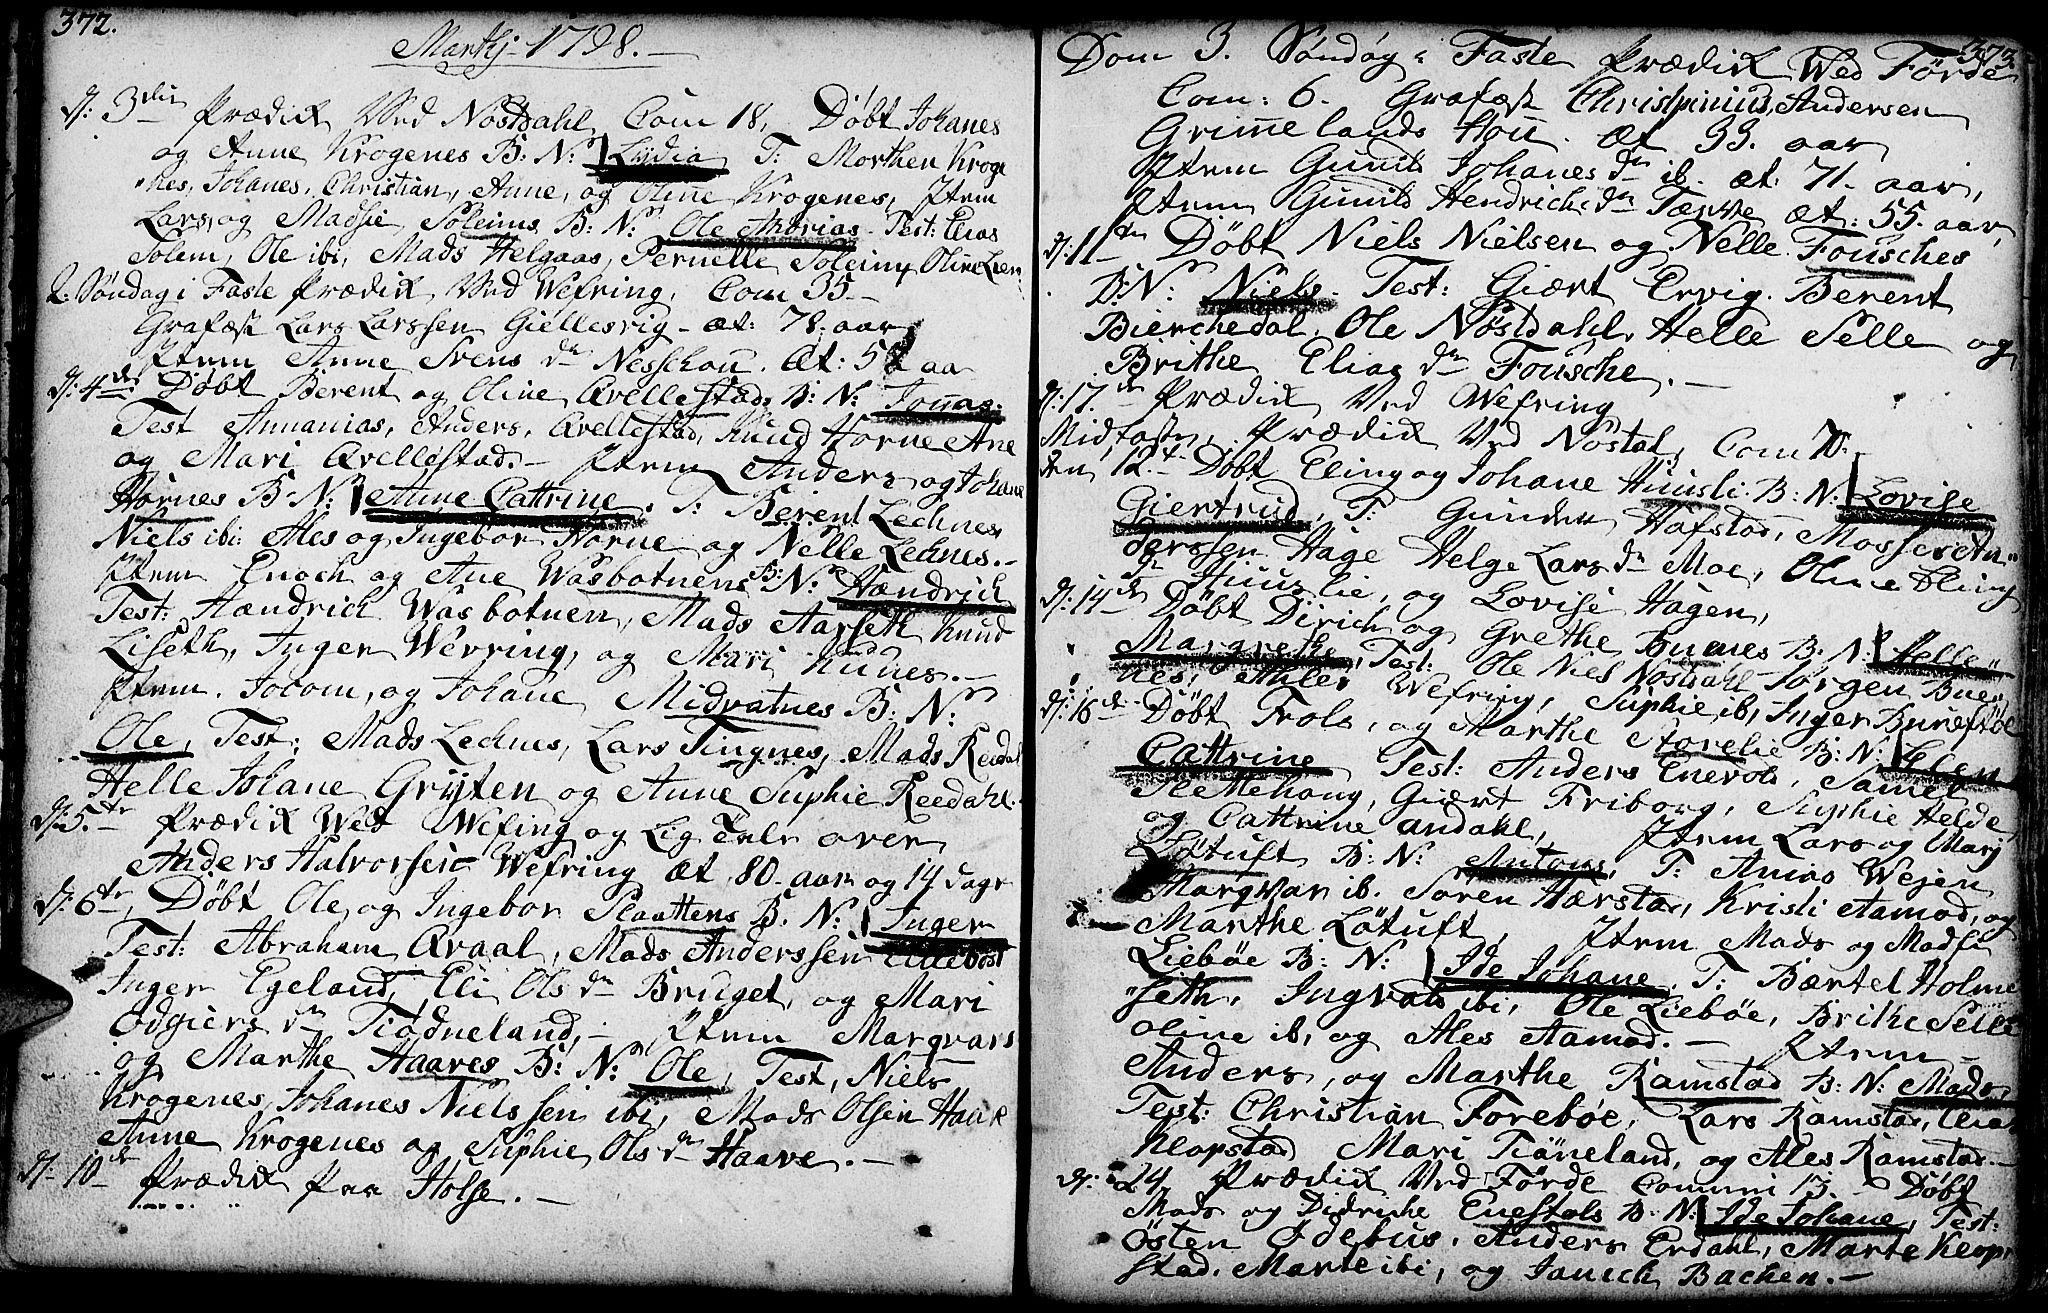 372.
Martij 1798.
d: 3die Prædik Ved Nøstdahl Com 18, Døbt Johanes
og Anne Krogenes B: N: Lydia T: Morthen Kroge
nes, Johanes, Christian, Anne, og Oline Krogenes, Item
Lars, og Madsie Soleims B: N: Ole Andrias Test: Elias
Solem, Ole ibi, Mads Helgaas, Pernelle Soleim, Oline Lien
2: Søndag i Faste Prædik Ved Wefring, Com 35
Grafæst Lars Larssen Giellesvig æt: 78: aar
Item Anne Svens dr Nesschou. Æt: 57 aar
d: 4de Døbt Berent og Oline Qvellestads B: N: Jonas.
Test Annanias, Anders, Qvellestad, Knud Horne Ane
og Mari Qvellestad. Item Anders og Johane
Hornes B: N: Anne Cattrine, T: Berent Lechnes,
Niels ibi: Ales og Ingebor Horne og Nelle Lechnes.
Item Enoch og Ane Wasbotnens B: N: Hændrich
Test: Hændrich Wasbotnen, Mads Aarseth Knud
Liseth, Inger Werring, og Mari Kudnes.
Item. Jocom, og Johane Midvatnes B: N:
Ole, Test: Mads Lechnes, Lars Tingnes, Mads Reedal
Helle Johane Gryten og Anne Suphie Reedahl.
d: 5te Prædik Wed Wefring og Lig Tale over
Anders Halvorsen Wefring æt 80. aar og 14 dage
d: 6te, Døbt Ole, og Ingebor Slaattens B: N: Inger
Test: Abraham Qvaal, Mads Anderssen
Inger Egeland, Eli Ols dr Bruget, og Mari
Odgiers dr Tiødneland, Item Marqvars
og Marthe Haares B: N: Ole, Test, Niels
Krogenes, Johanes Nielssen ibi, Mads Olsen Haare
Anne Krogenes og Suphie Ols dr Haare.
d: 10de Prædik paa Holse.
373
Dom 3. Søndag i Faste Prædik Wed Førde
Com: 6. Grafæst Christpinius Andersen
Grimelands Hou. æt 33. aar
Item Gunild Johanes dr ib. æt: 71. aar,
Item Gunild Hendrichs dr Tærve æt: 55. aar,
d: 11te Døbt Niels Nielsen og Nelle Fousches
B: N: Niels. Test: Giært Ervig. Berent
Bierchedal, Ole Nøstdahl, Helle Selle og
Brithe Elias dr Fousche.
d: 17de Prædik Ved Wefring
Midfaste, Prædik Ved Nøstal, Com 70.
den 12. Døbt Eling og Johane Huusli B: N: Lovise
Giertrud, T: Gunder Hafstad, Mosses An
derssen Hage Helge Lars dr Moe, Oline Eling
dr Huuslie, og Lovise Hagen,
d: 14de Døbt Dirich og Grethe Buenes B: N: Helle
Margrethe, Test: Ole Niels Nøstdahl Jørgen Bue
nes, Ahlet Wefring, Suphie ib, Inger Bureftøe
d: 16de Døbt Trols, og Marthe Aarelie B: N: Elen
Cattrine Test: Anders Enevold, Samel
Slethoug, Giært Friborg, Suphie Helde
og Cattrine andahl, Item Lars og Mary
Løtuft B: N: Antons, T: Anders Wejen
Marqvar ib. Søren Hærstad, Kristi Aamod, og
Marthe Løtuft, Item Mads og Madsie
Liebøe B: N: Ide Johane, T: Bærtel Holme
seth, Ingvals ibi, Ole Liebøe, Brithe Selle
oline ib, og Ales Aamod. Item
Anders, og Marthe Ramstad B: N: Mads,
Test: Christian Forebøe, Lars Ramstad, Elias
Klopstad Mari Tiøneland, og Ales Ramstad.
d: 24 Prædik Ved Førde Communi 13. Døbt
Mads og Didriche Enestols B: N: Ide Johane, Test:
Østen Idebus, Anders Erdahl, Marte Klop
stad, Marte ibi, og Janich Bachen.